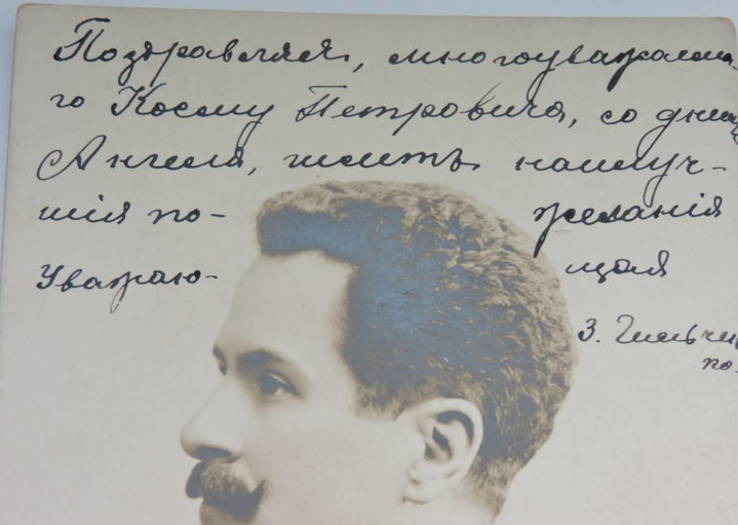 Поздравляя, многоуважаема-
го Косму Петровича, со днем
Ангела, шлетъ наилуч-
шія по- желанія
Уважаю- щая
З.